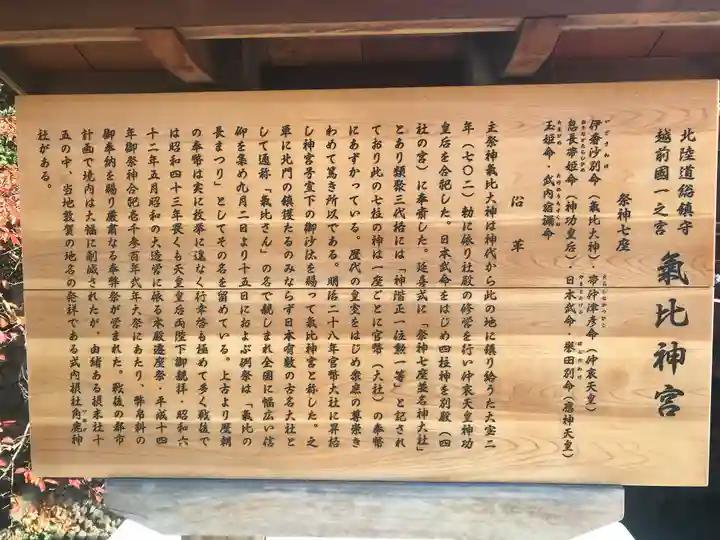 北陸道総鎮守
越前國一之宮
氣比神宮
祭神七座
伊奢沙別命(氣比大神)・帯仲津彦命(仲哀天皇)
息長帯姫命(神功皇后)・日本武命・誉田別命(應神天皇)
玉姫命・武内宿禰命
沿革
主祭神氣比大神は神代から此の地に鎮り給うた大宝二
年(七〇二)勅に依り社殿の修営を行い仲哀天皇神功
皇后を合祀した。日本武命をはじめ四柱神を別殿(四
社の宮)に奉斎した。延喜式に「祭神七座並名神大社」
とあり類聚三代格には「神階正一位勲一等」と記され
ており此の七柱の神は一座ごとに官幣(大社)の奉幣
にあずかっている。歴代の皇室をはじめ衆庶の尊崇き
わめて篤き所以である。明治二十八年官幣大社に昇格
し神宮号宣下の御沙汰を賜って氣比神宮と称した。之
単に北門の鎮護たるのみならず日本有数の古名大社と
して通称「氣比さん」の名で親しまれ全国に幅広い信
仰を集め九月二日より十五日におよぶ例祭は「氣比の
長まつり」としてその名を留めている。上古より歴朝
の奉幣は実に枚挙に遑なく行幸啓も極めて多く戦後で
は昭和四十三年畏くも天皇皇后両陛下御親拝・昭和六
十二年五月昭和の大造営に依る本殿遷座祭・平成十四
年御祭神合祀壱千参百年式年大祭にあたり、幣帛料の
御奉納を賜り厳粛なる奉幣祭が営まれた。戦後の都市
計画で境内は大幅に削減されたが、由緒ある摂末社十
五の中、当地敦賀の地名の発祥である式内摂社角鹿神
社がある。